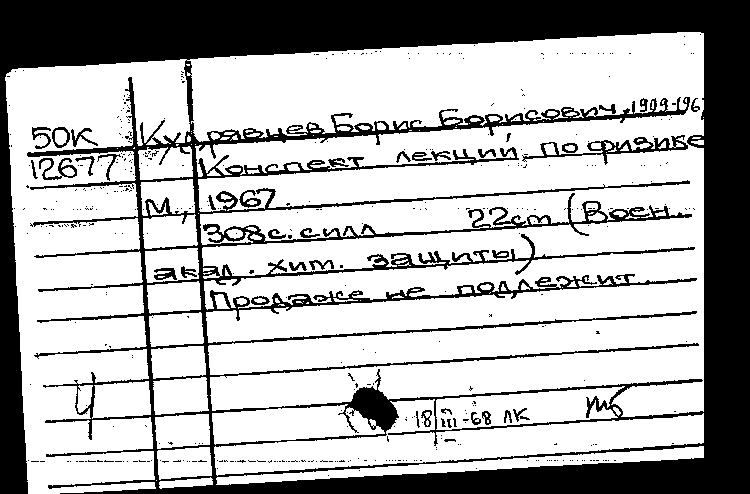 50К Кудрявцев, Борис Борисович, 1909-196
12677 Конспект лекций по физике
М., 1967.
308с. с илл. 22cm (Воен.
акад. хим. защиты)
Продаже не подлежит.
4
18 III -68 ЛК